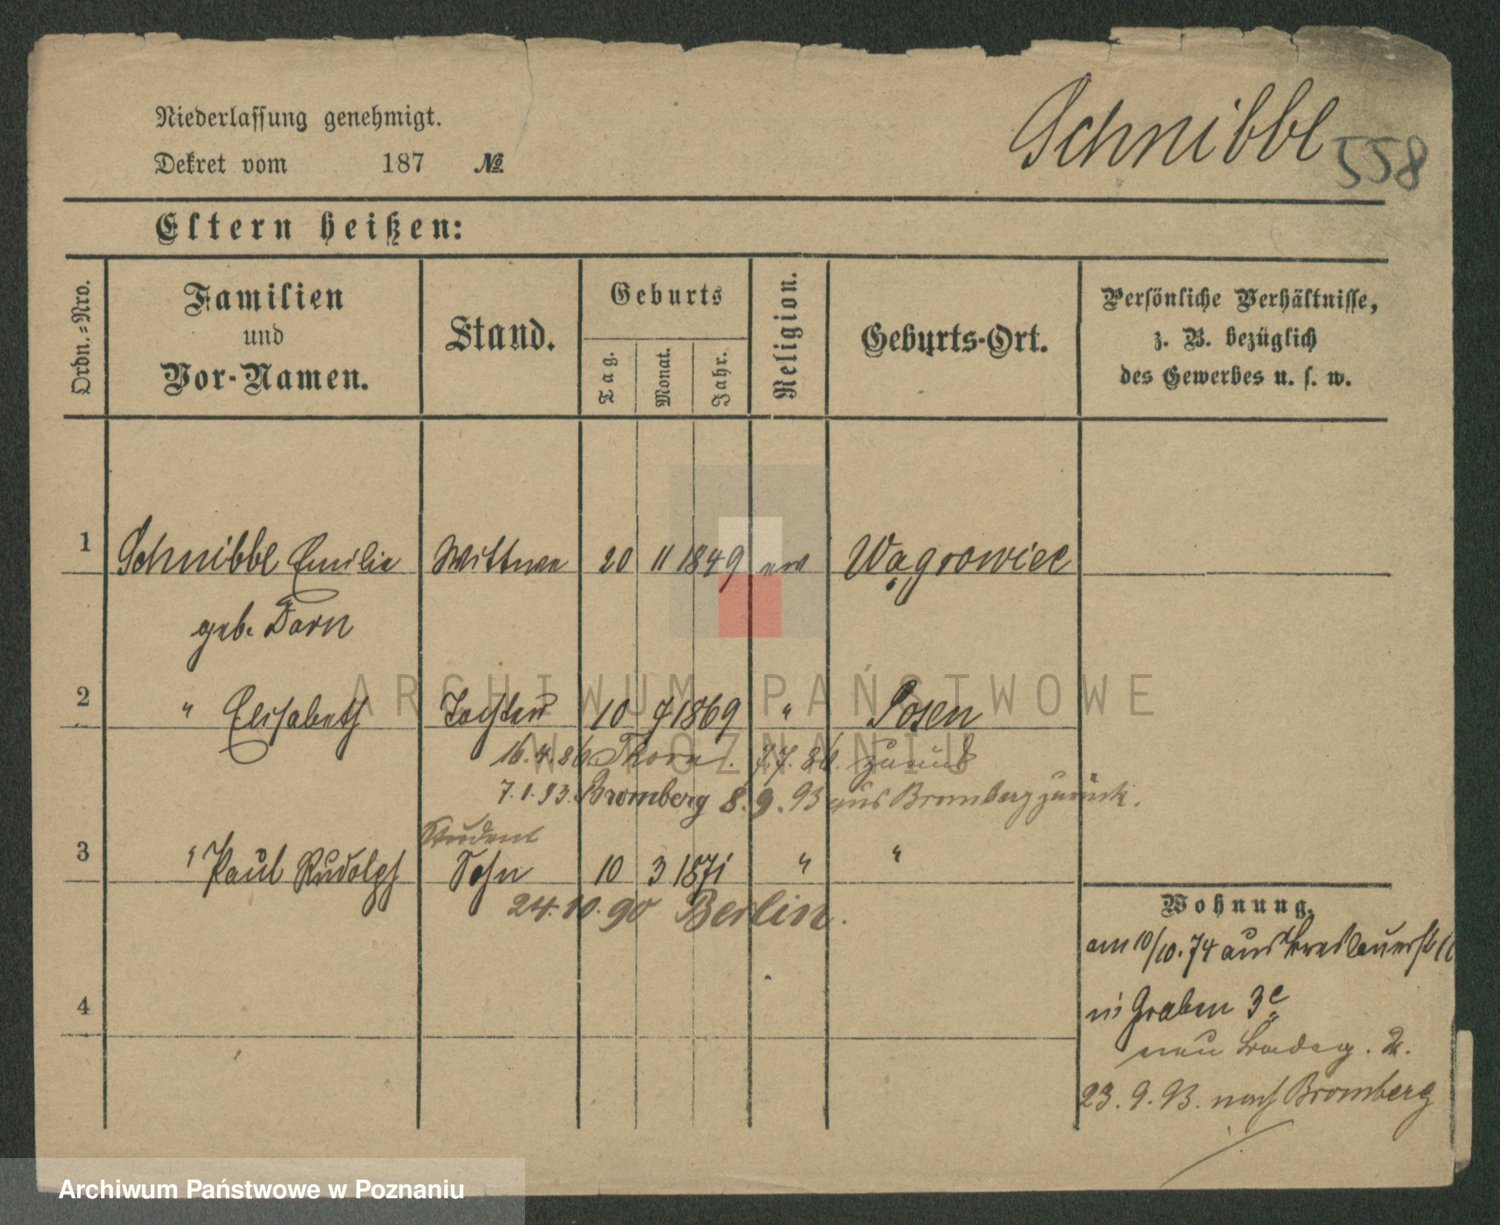 Niederlassung genehmigt.
Schnibbl
558
Dekret vom 187 №
Eltern heißen:
Ordn.=Nro.
Familien
und
Vor-Namen.
Stand.
Geburts
Tag.
Monat.
Jahr.
Religion.
Geburts-Ort.
Persönliche Verhältnisse,
z. B. bezüglich
des Gewerbes u. s. w.
1 Schnibbl Emilie Wittwe 20 11 1849 ev Wągrowiec
geb. Dorn
2 " Elisabeth Tochter 10 7 1869 " Posen
16.4.86 Thorn. 7.7.86. zurück
7.1.93. Bromberg 8.9.93 aus Bromberg zurück.
Student
3 " Paul Rudolph Sohn 10 3 1871 " "
24.10.90 Berlin.
Wohnung.
am 10/10.74 aus Breslauerst
in Graben 3c
4
neu 2.
23.9.93. nach Bromberg
ARCHIWUM PAŃSTWOWE
W POZNANIU
Archiwum Państwowe w Poznaniu